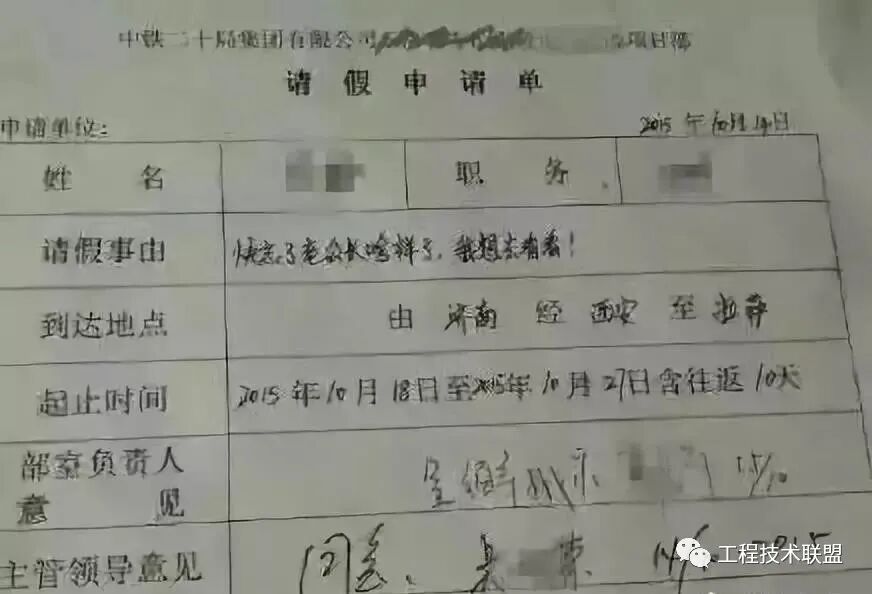 中铁二十局集团有限公司 项目部
请假申请单
申请单位: 2015年10月14日
姓名 职务
请假事由 快忘了老公长啥样了,我想去看看!
到达地点 由 济南 经 西安 至 拉萨
起止时间 2015年10月18日至2015年10月27日含往返10天
部室负责人
意见
主管领导意见 同意
工程技术联盟